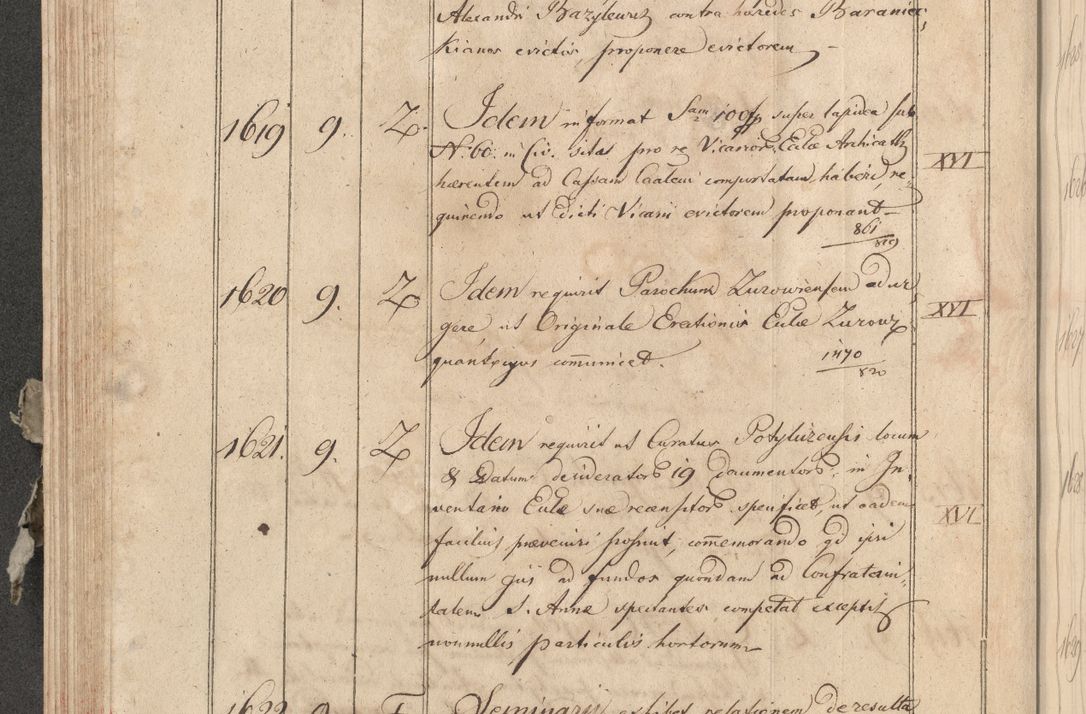 Alexandri Bazylewicz contra hæredes Baraniec,
kianos evictis, proponere evictorem —
1619 9. Z. Idem informat Sam̄ 100 f. super lapidea sub
N. 60. in Civ. sitas pro re Vicarior. Ecclæ Archicath
hærentem ad Cassam comportatam haberi, re, XVI
quirendo ut dicti Vicarii evictorem proponant —
861
819
1620 9. Z Idem requirit Parochum Zurowiensem ad ur,
gere, ut Originale Erectionis Ecclæ Zurow XVI
quantocyus com̄unicet. 1470
820
1621. 9. Z Idem requirit ut Curatus Potyliczensis locum
& Datum desiderator 19 documentor. in In,
ventario Ecclæ suæ recensitor specificet, ut eadem XVI
facilius præveniri possint, com̄emorando qd ipsi
nullum jus ad fundos quondam ad Confraterni,
tatem S. Annæ spectantes competat exceptis
nonnullis particulis hortorum
1622 9 F Seminarii exhibet relationem de resulta